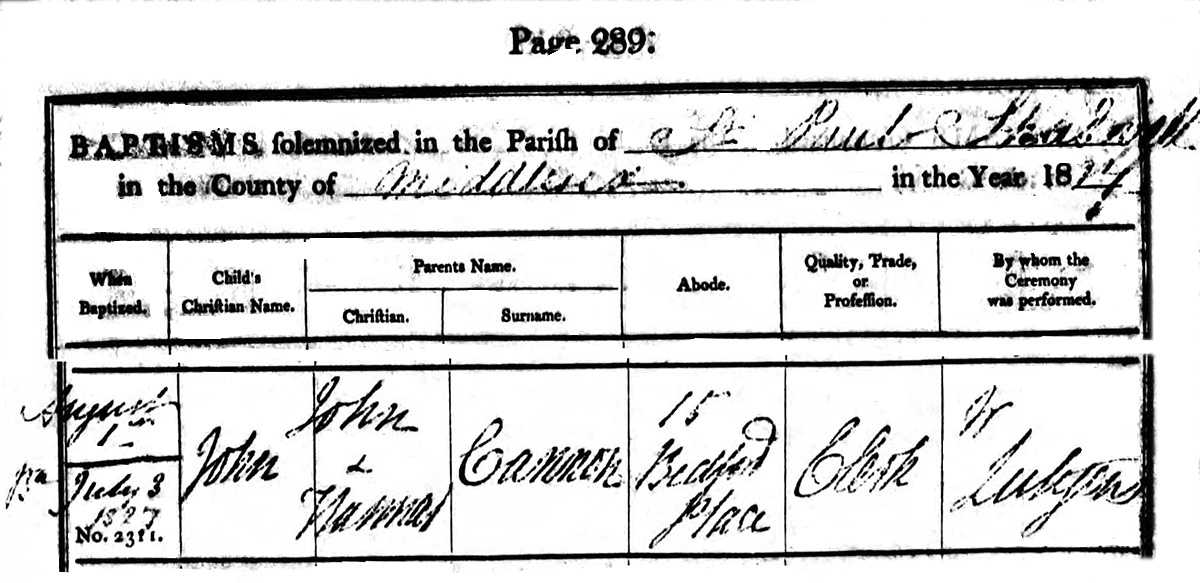 Page 289:
BAPTISMS solemnized in the Parish of St Paul Shadwell
in the County of Middlesex in the Year 1827
When Baptized.
Child's Christian Name.
Parents Name.
Christian.
Surname.
Abode.
Quality, Trade, or Profession.
By whom the Ceremony was performed.
August
1st
Bn July 3
1827
No. 2311.
John
John
&
Hannah
Cannon
15
Bedford
Place
Clerk